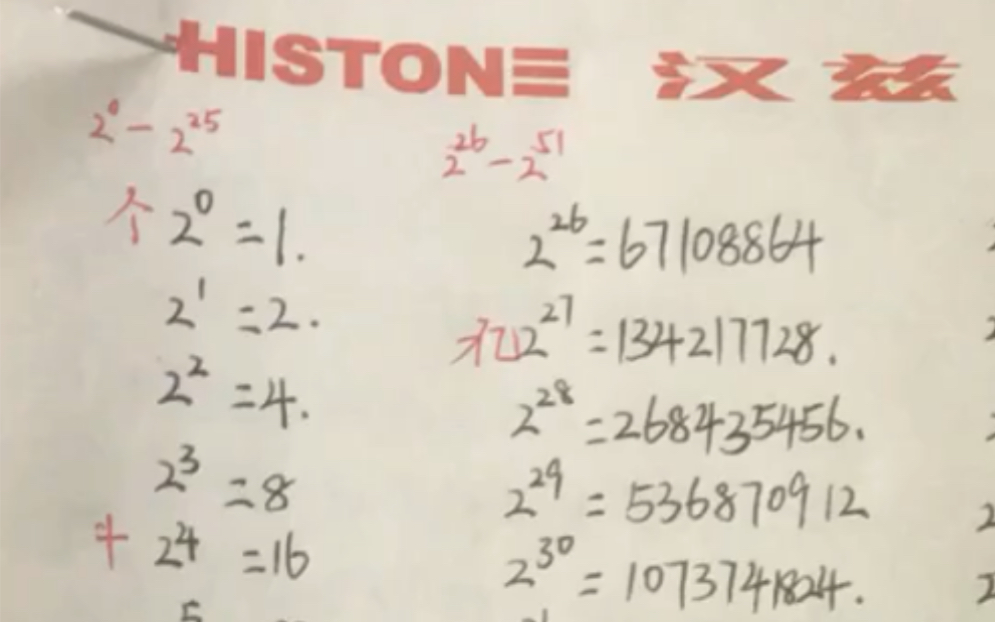 HISTONE 汉兹
2⁰-2²⁵
个 2⁰=1.
2¹=2.
2²=4.
2³=8
十 2⁴=16
2²⁶-2⁵¹
2²⁶=67108864
亿 2²⁷=134217728.
2²⁸=268435456.
2²⁹=536870912
2³⁰=1073741824.